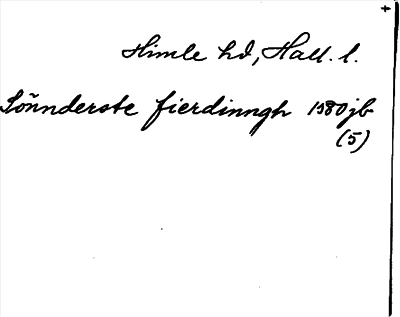 Himle hd, Hall. l.
Sönnderste fierdinngh 1580 jb
(5)